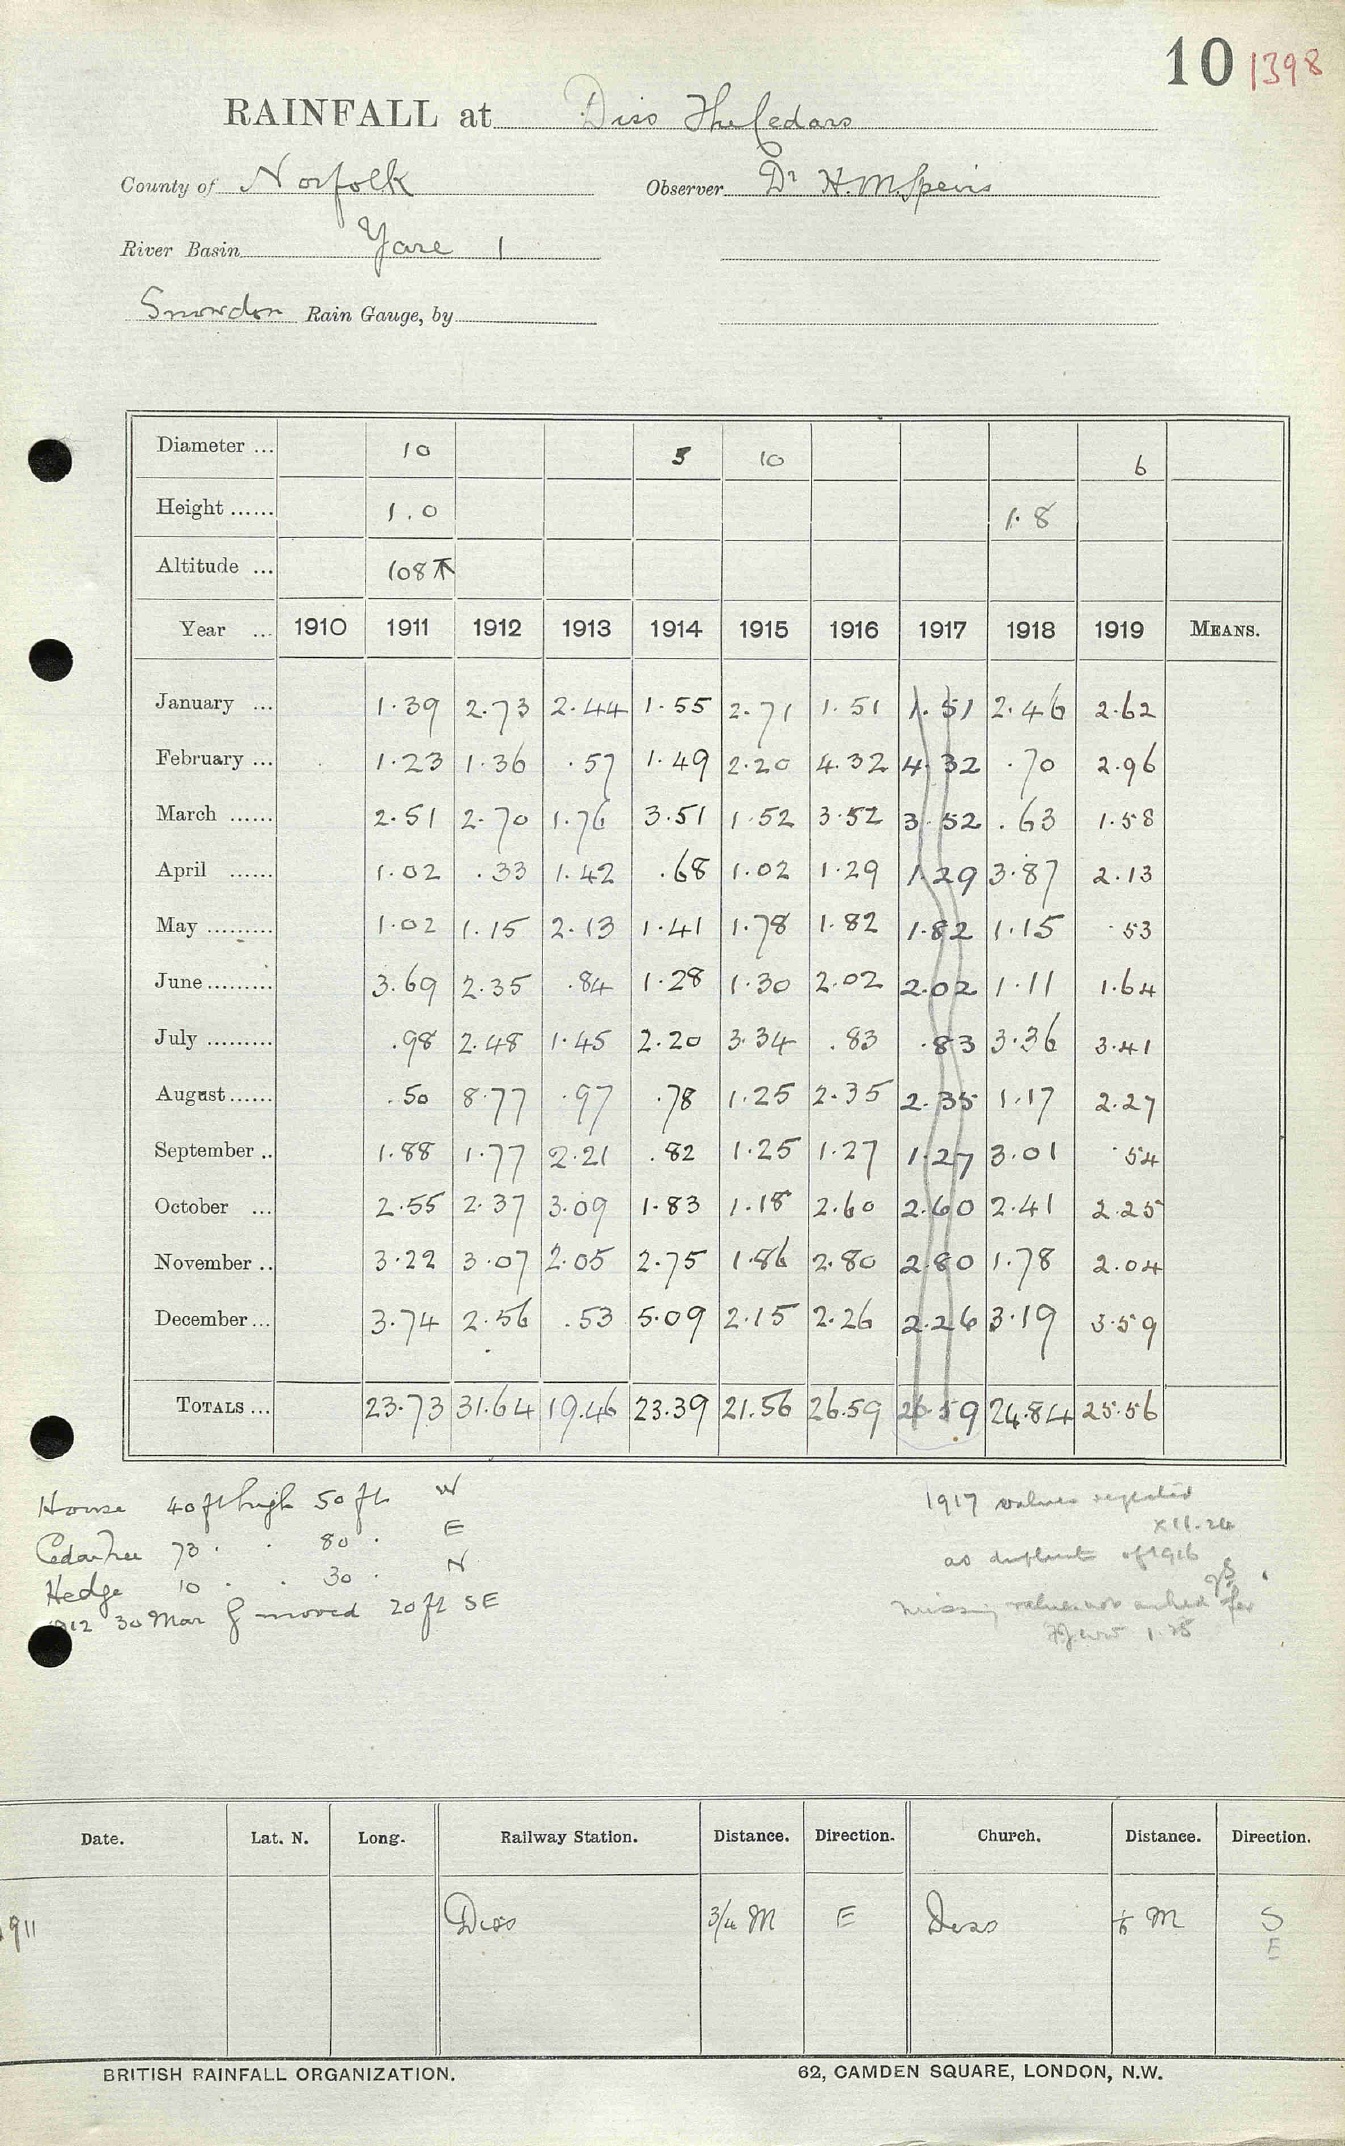 10 1398
RAINFALL at Diss The Cedars
County of Norfolk Observer Dr H. M. Speirs
River Basin Yare 1
Snowdon Rain Gauge, by
Diameter ... 10 5 10 6
Height ...... 1.0 1.8
Altitude ... 108
Year ... 1910 1911 1912 1913 1914 1915 1916 1917 1918 1919 MEANS.
January ... 1.39 2.73 2.44 1.55 2.71 1.51 1.51 2.46 2.62
February ... 1.23 1.36 .57 1.49 2.20 4.32 4.32 .70 2.96
March ...... 2.51 2.70 1.76 3.51 1.52 3.52 3.52 .63 1.58
April ...... 1.02 .33 1.42 .68 1.02 1.29 1.29 3.87 2.13
May ......... 1.02 1.15 2.13 1.41 1.78 1.82 1.82 1.15 .53
June ......... 3.69 2.35 .84 1.28 1.30 2.02 2.02 1.11 1.64
July ......... .98 2.48 1.45 2.20 3.34 .83 .83 3.36 3.41
August ...... .50 8.77 .97 .78 1.25 2.35 2.35 1.17 2.27
September .. 1.88 1.77 2.21 .82 1.25 1.27 1.27 3.01 .54
October ... 2.55 2.37 3.09 1.83 1.18 2.60 2.60 2.41 2.25
November .. 3.22 3.07 2.05 2.75 1.86 2.80 2.80 1.78 2.04
December ... 3.74 2.56 .53 5.09 2.15 2.26 2.26 3.19 3.59
TOTALS ... 23.73 31.64 19.46 23.39 21.56 26.59 26.59 24.84 25.56
House 40 ft high 50 ft W
Cedar Tree 73 . . 80 . E
Hedge 10 . . 30 . N
1912 30 Mar G moved 20 ft SE
1917 values rejected
XII.24
as of 1916
missing values not asked for
1.25
Date. Lat. N. Long. Railway Station. Distance. Direction. Church. Distance. Direction.
911 Diss 3/4 M E Diss M S
E
BRITISH RAINFALL ORGANIZATION. 62, CAMDEN SQUARE, LONDON, N.W.